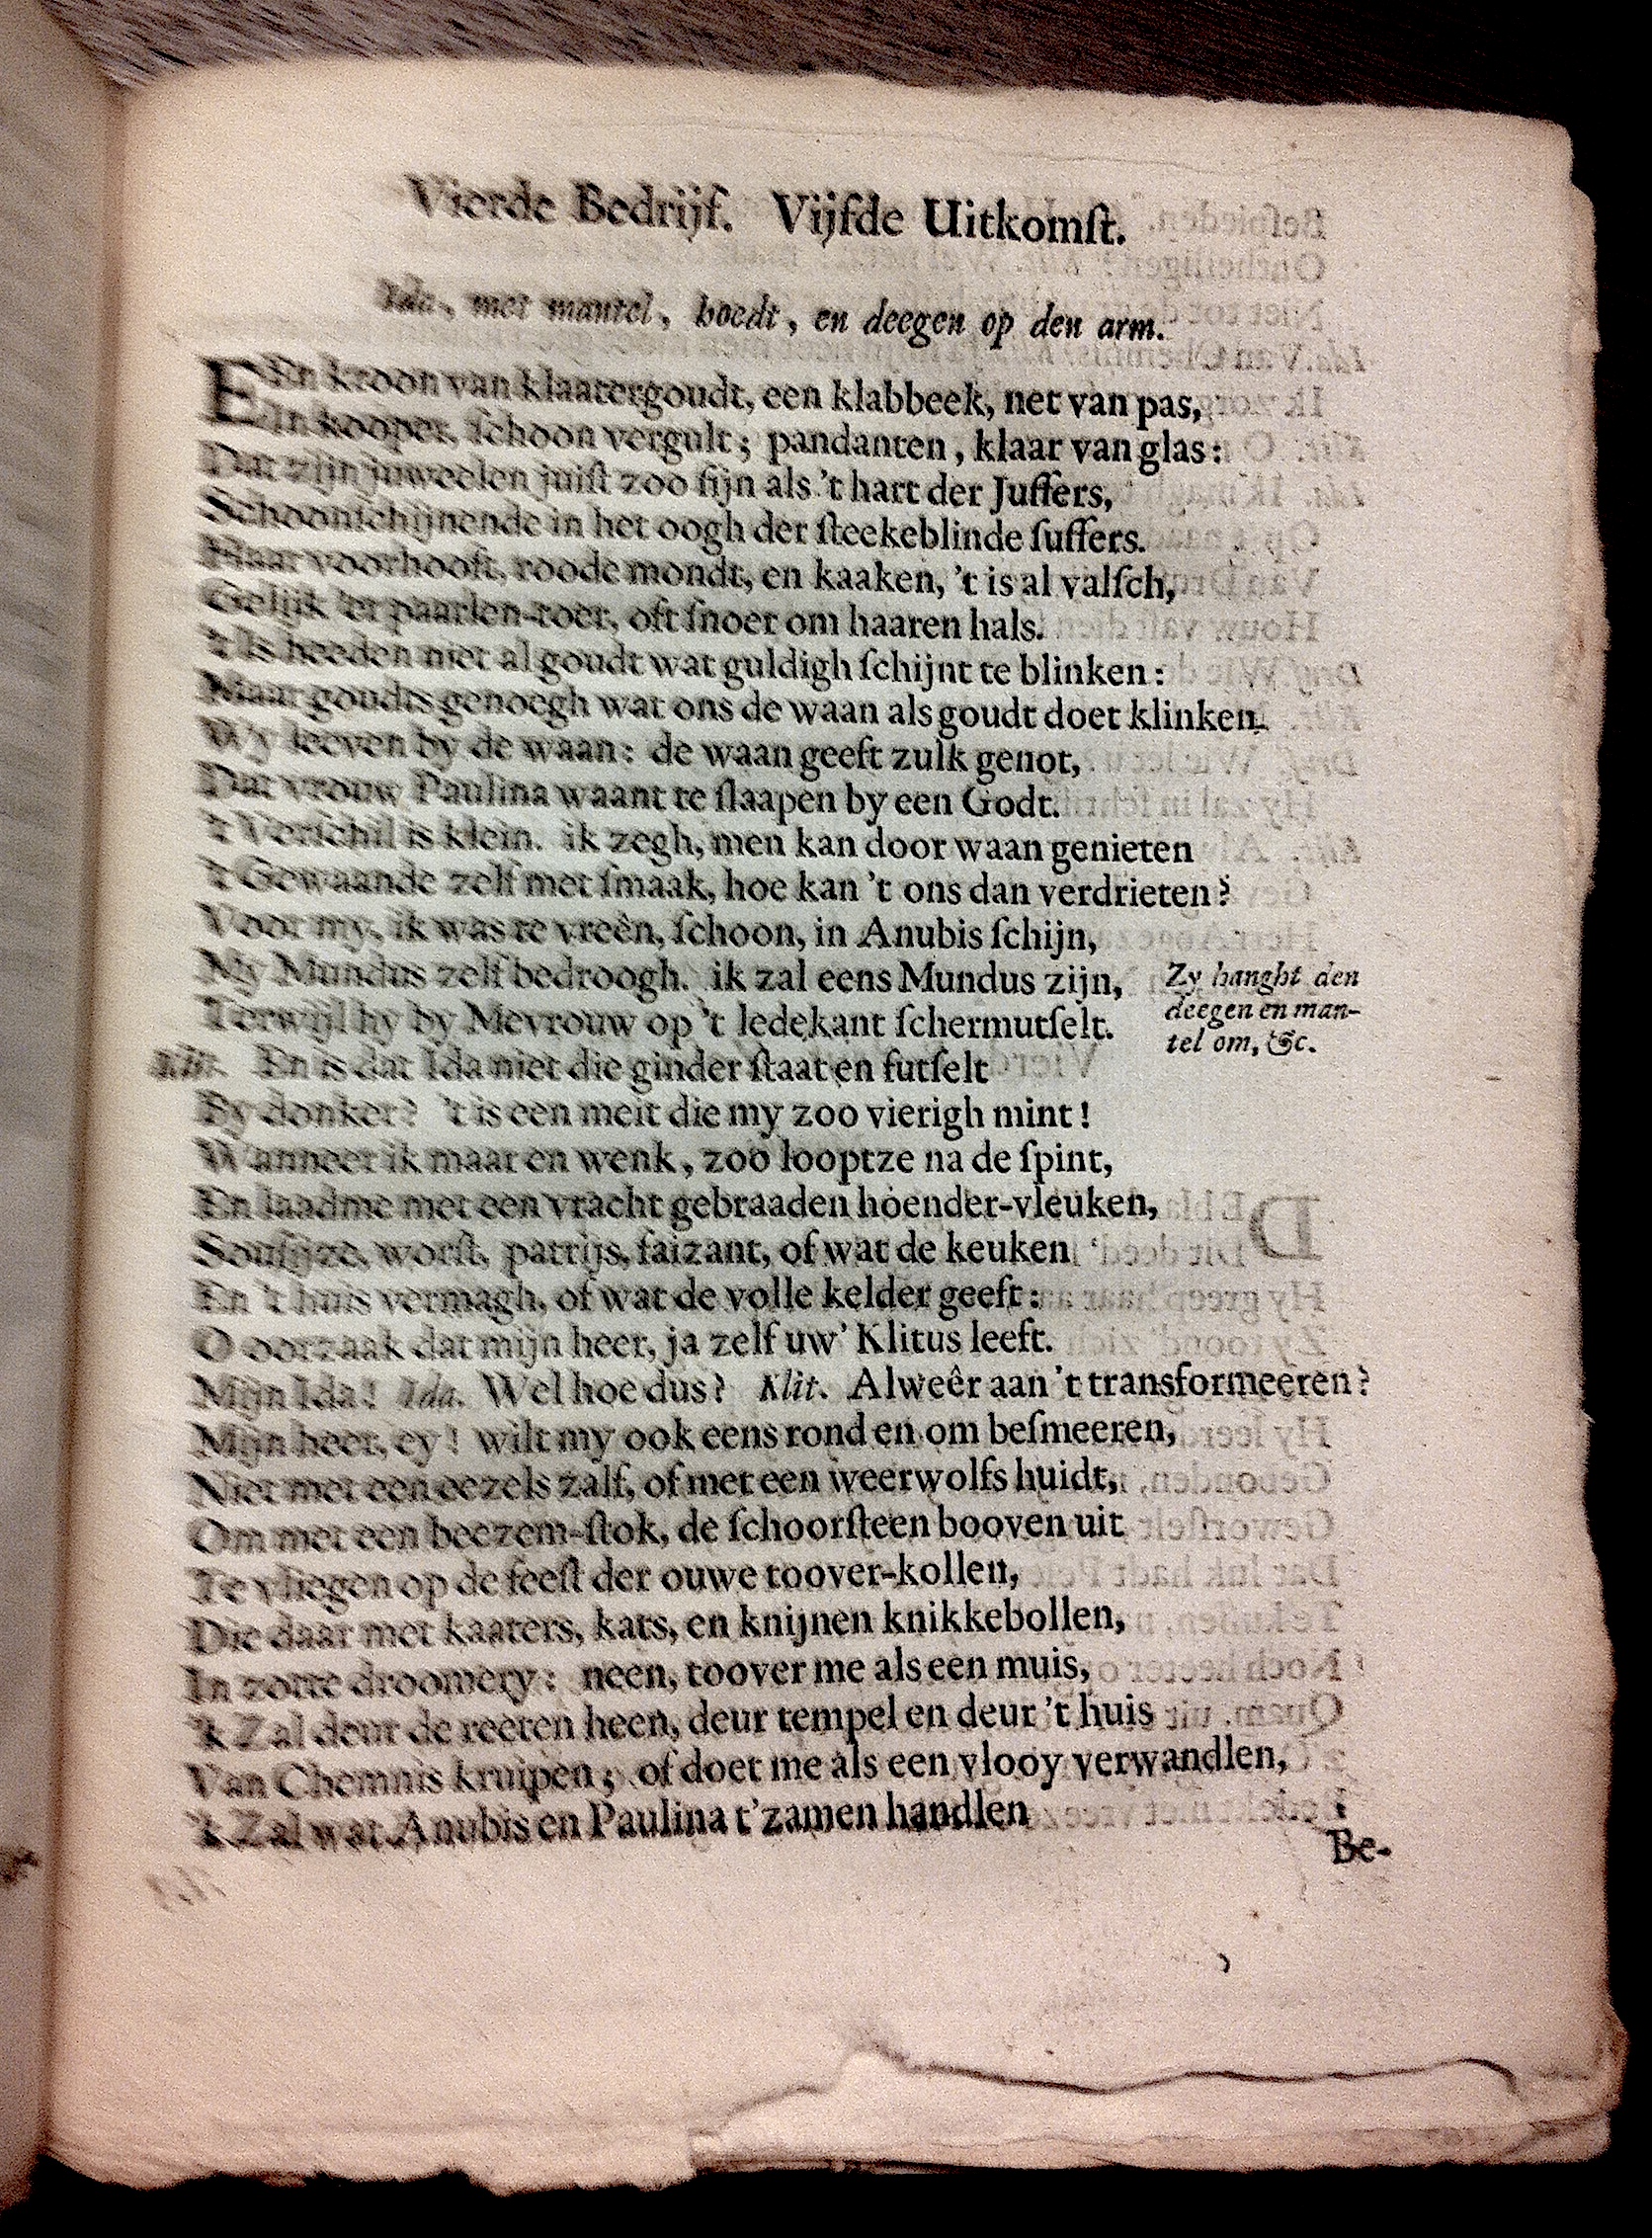 Vierde Bedrijf. Vijfde Uitkomſt.
Ida, met mantel, hoedt, en deegen op den arm.
EEn kroon van klaatergoudt, een klabbeek, net van pas,
In kooper, ſchoon vergult; pandanten, klaar van glas:
Dat zijn juweelen juiſt zoo fijn als 't hart der Juffers,
Schoonſchijnende in het oogh der ſteekeblinde ſuffers.
Haar voorhooft, roode mondt, en kaaken, 't is al valſch,
Gelijk 'er paarlen-roer, oft ſnoer om haaren hals.
't Is heeden niet al goudt wat guldigh ſchijnt te blinken:
Maar goudts genoegh wat ons de waan als goudt doet klinken.
Wy leeven by de waan: de waan geeft zulk genot,
Dat vrouw Paulina waant te ſlaapen by een Godt.
't Verſchil is klein. ik zegh, men kan door waan genieten
't Gewaande zelf met ſmaak, hoe kan 't ons dan verdrieten?
Voor my, ik was te vreên, ſchoon, in Anubis ſchijn,
My Mundus zelf bedroogh. ik zal eens Mundus zijn,
Terwijl hy by Mevrouw op 't ledekant ſchermutſelt.
Zy hanght den
deegen en man-
tel om, &c.
Klit. En is dat Ida niet die ginder ſtaat en futſelt
By donker? 't is een meit die my zoo vierigh mint!
Wanneer ik maar en wenk, zoo looptze na de ſpint,
En laadme met een vracht gebraaden hoender-vleuken,
Souſijze, worſt, patrijs, faizant, of wat de keuken
En 't huis vermagh, of wat de volle kelder geeft:
O oorzaak dat mijn heer, ja zelf uw' Klitus leeft.
Mijn Ida! Ida. Wel hoe dus? Klit. Alweêr aan 't transformeeren?
Mijn heer, ey! wilt my ook eens rond en om beſmeeren,
Niet met een eezels zalf, of met een weerwolfs huidt,
Om met een beezem-ſtok, de ſchoorſteen booven uit
Te vliegen op de feeſt der ouwe toover-kollen,
Die daar met kaaters, kats, en knijnen knikkebollen,
In zotte droomery: neen, toover me als een muis,
'k Zal deur de reeten heen, deur tempel en deur 't huis
Van Chemnis kruipen; of doet me als een vlooy verwandlen,
'k Zal wat Anubis en Paulina t'zamen handlen
Be-